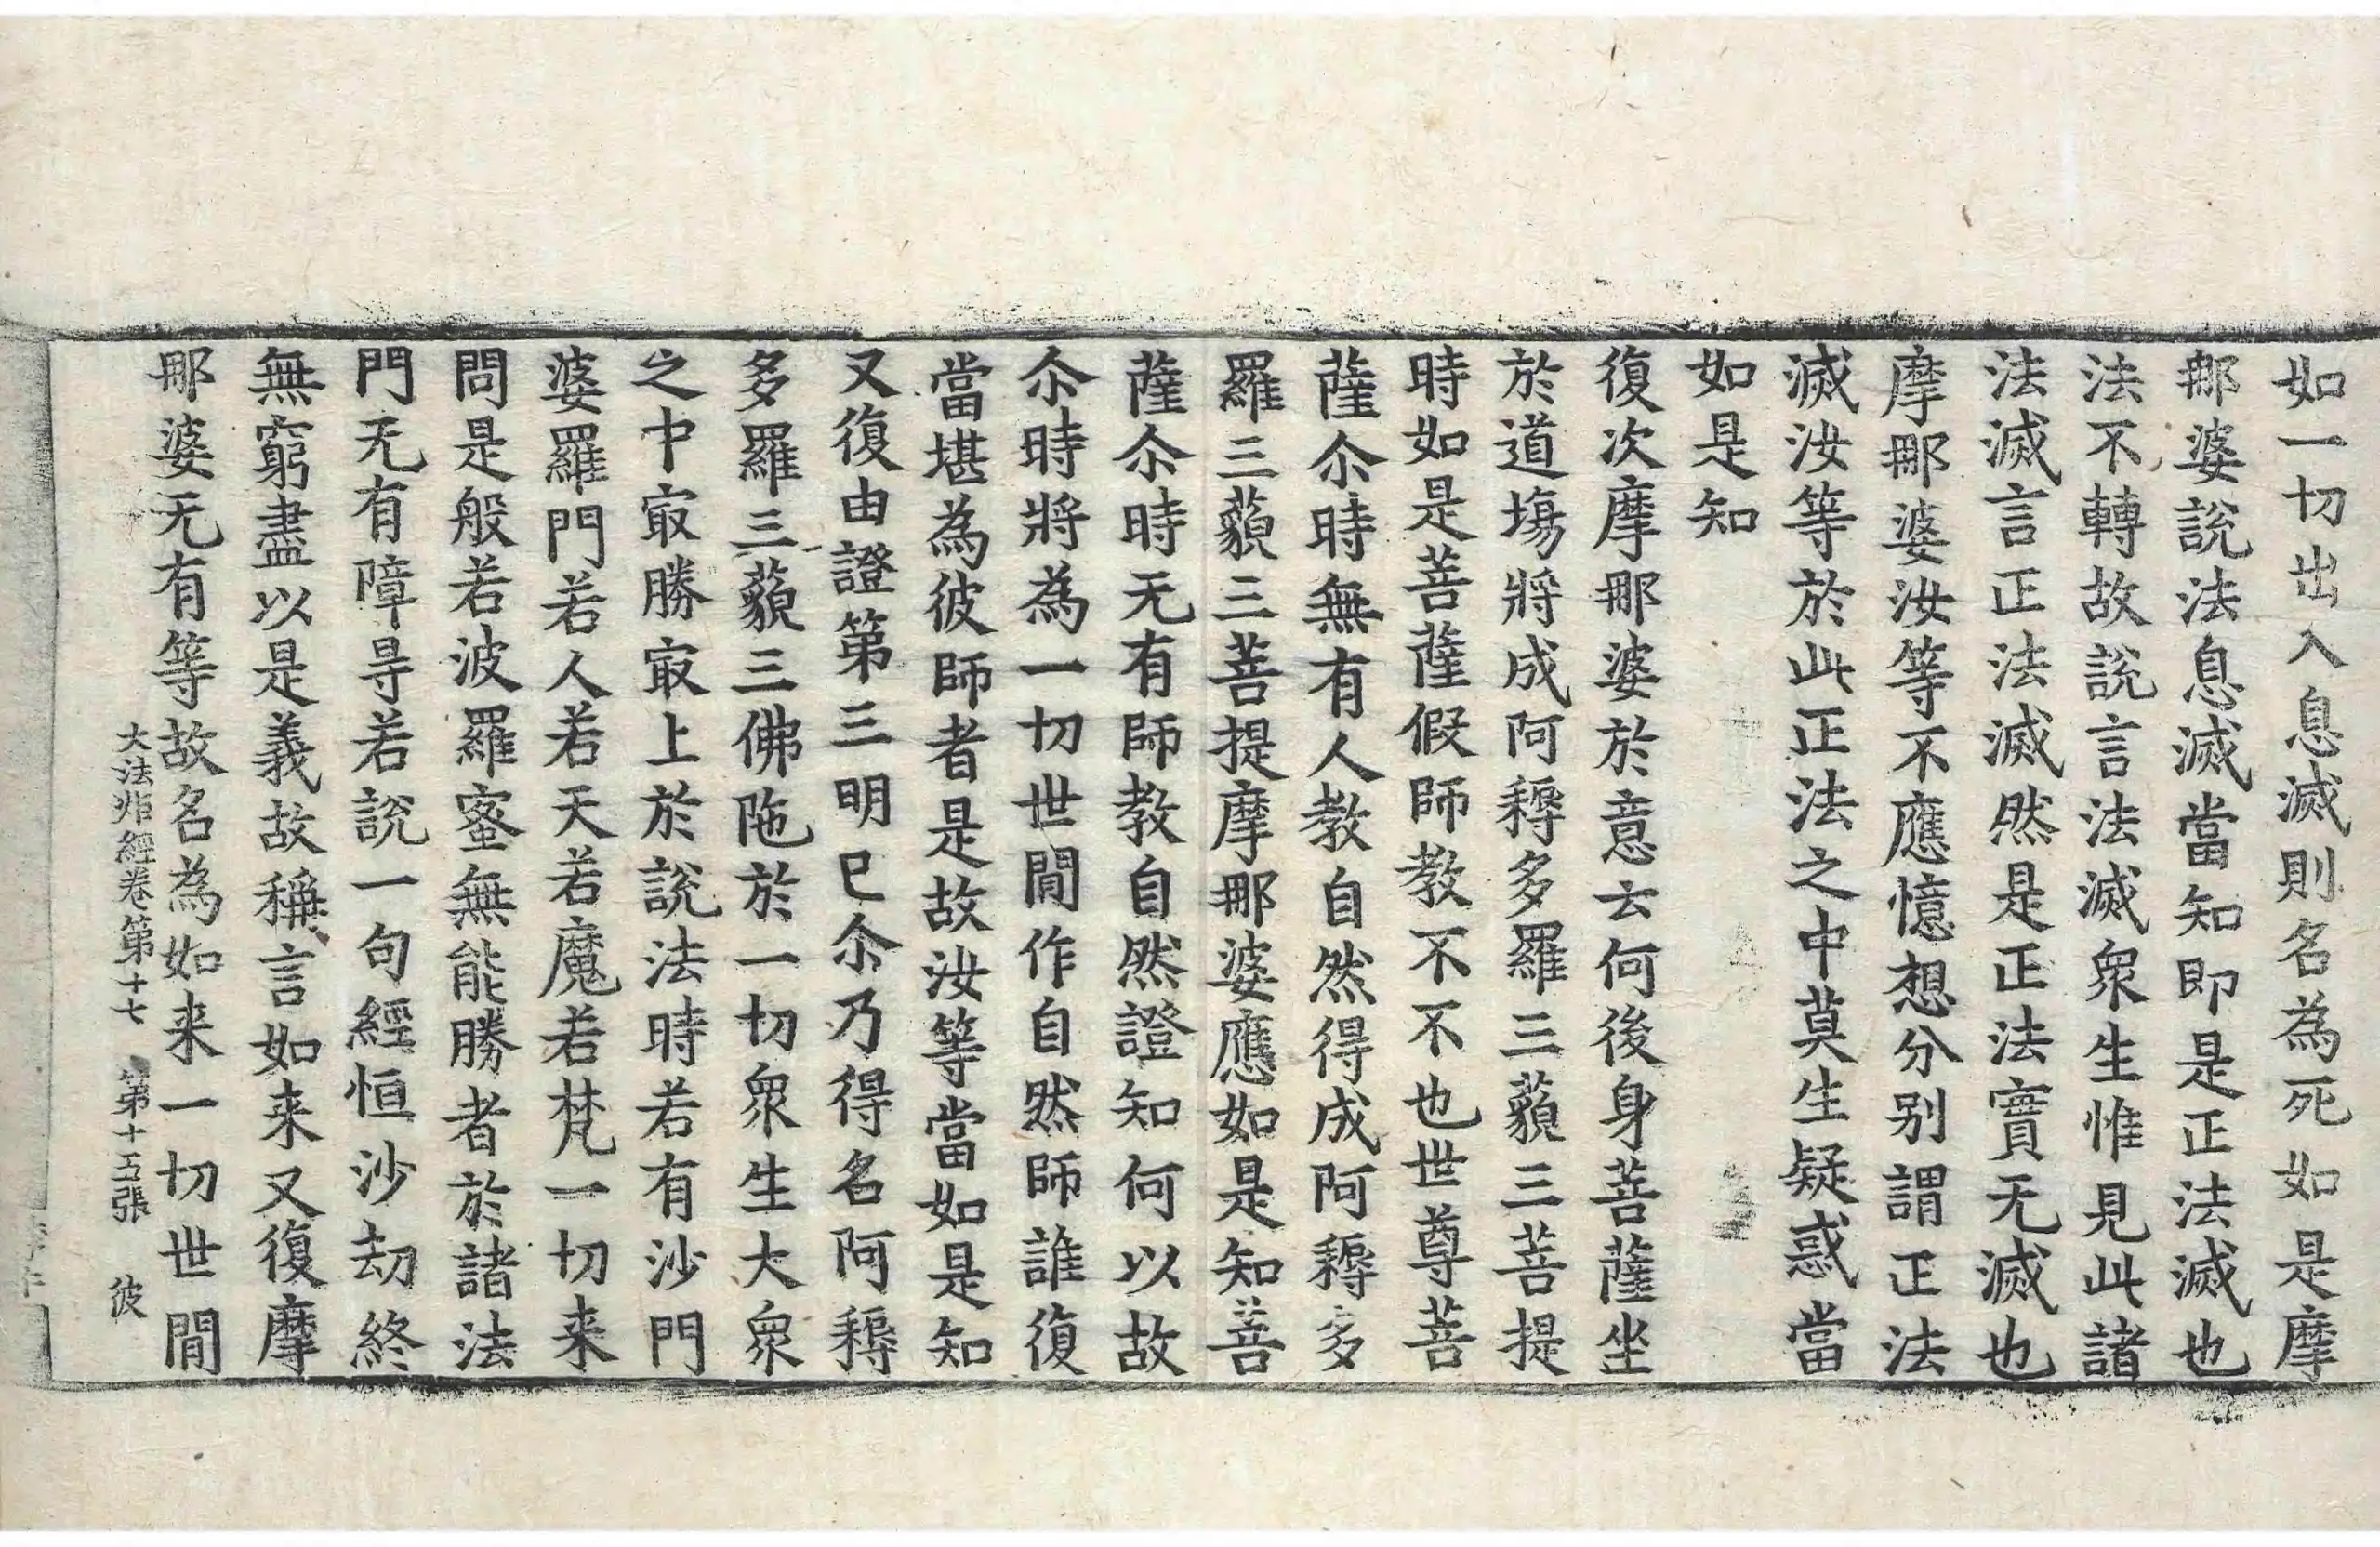 如一切出入息滅則名為死如是摩
那婆說法息滅當知即是正法滅也
法不轉故說言法滅衆生惟見此諸
法滅言正法滅然是正法寶无滅也
摩那婆汝等不應憶想分別謂正法
滅汝等於此正法之中莫生疑惑當
如是知
復次摩那婆於意云何後身菩薩坐
於道塲將成阿耨多羅三藐三菩提
時如是菩薩假師教不不也世尊菩
薩尒時無有人教自然得成阿耨多
羅三藐三菩提摩那婆應如是知菩
薩尒時无有師教自然證知何以故
尒時將為一切世間作自然師誰復
當堪為彼師者是故汝等當如是知
又復由證第三明已尒乃得名阿耨
多羅三藐三佛陁於一切衆生大衆
之中㝡勝㝡上於說法時若有沙門
婆羅門若人若天若魔若梵一切来
問是般若波羅蜜無能勝者於諸法
門无有障㝵若說一句經恒沙劫終
無窮盡以是義故稱言如来又復摩
那婆无有等故名為如来一切世間
大法炬經卷第十七 第十五張 彼